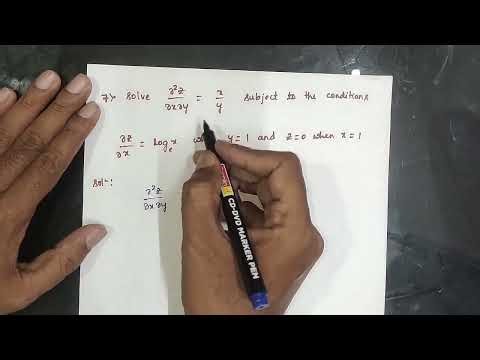 7) Solve ∂²z/∂x∂y = x/y subject to the conditions
∂z/∂x = logₑx y = 1 and z=0 when x = 1
Solⁿ:
∂²z/∂x∂y
CD-DVD MARKER PEN